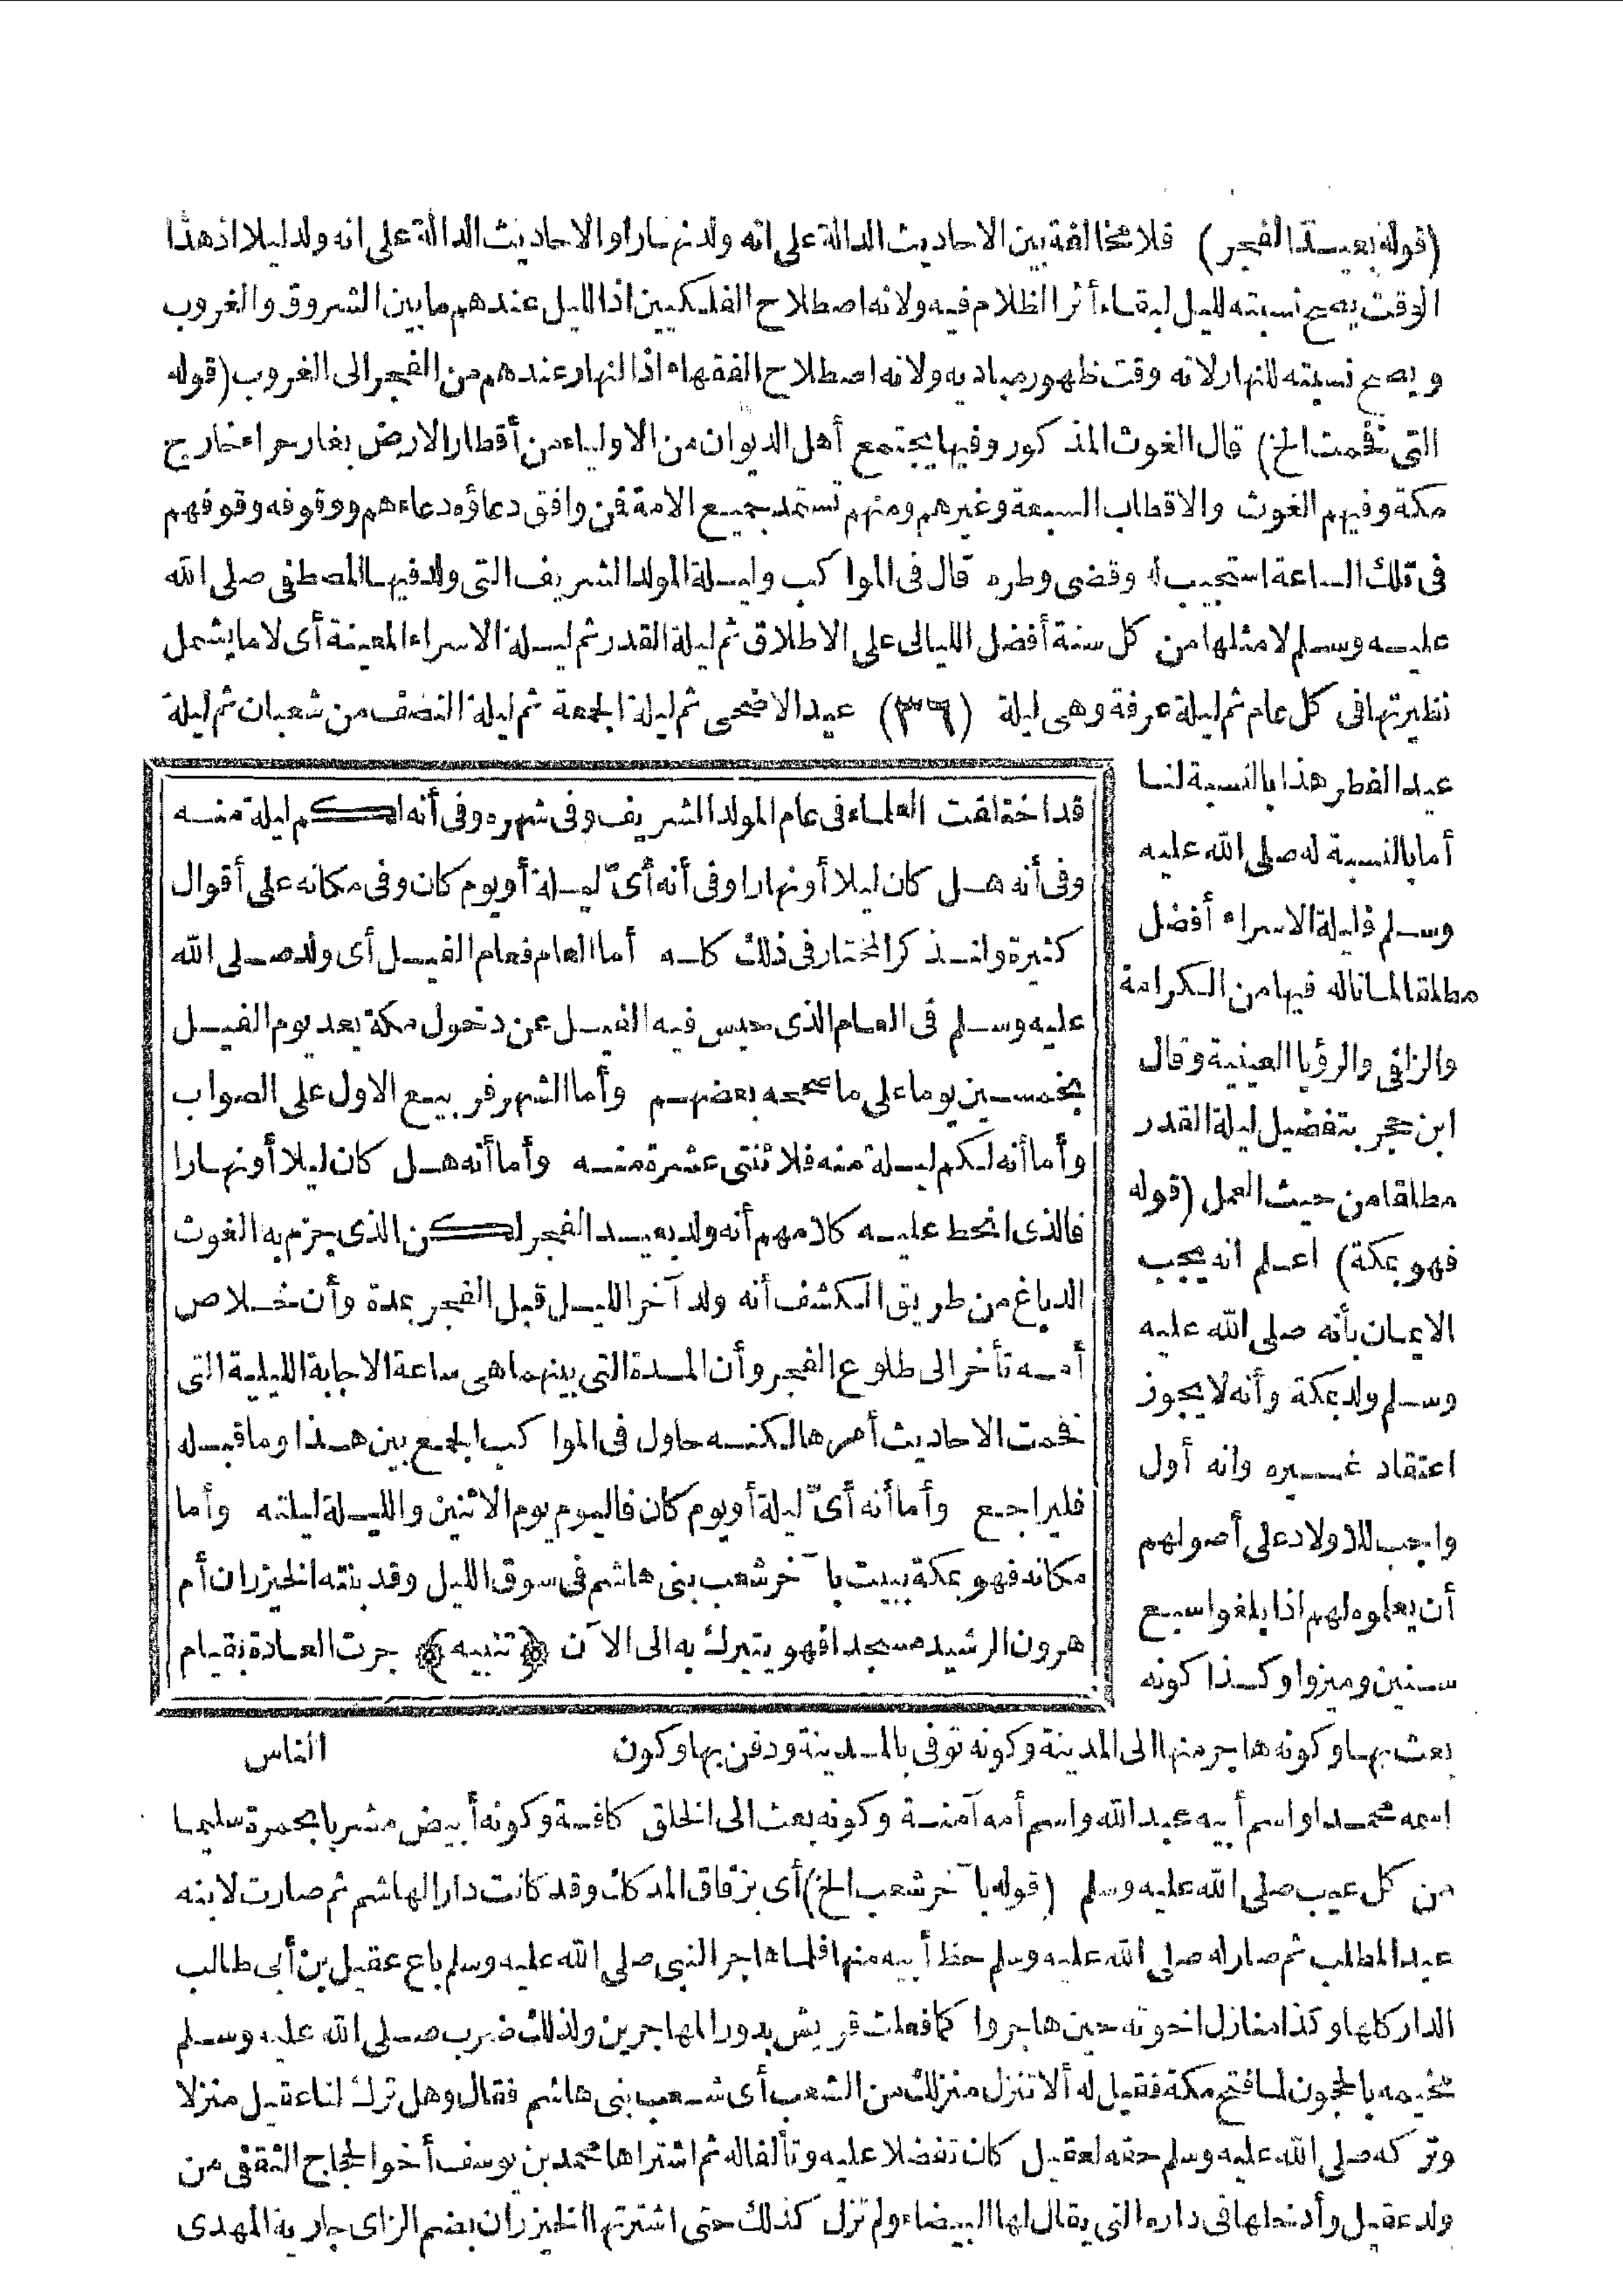 (قوله بعيد الفجر) فلا مخالفة بين الاحاديث الدالة على انه ولد نهارا والاحاديث الدالة على انه ولد ليلا اذ هذا
الوقت يصح نسبته لليل لبقاء أثر الظلام فيه ولانه اصطلاح الفلكيين اذ الليل عندهم ما بين الشروق والغروب
ويصح نسبته للنهار لانه وقت ظهور مباديه ولانه اصطلاح الفقهاء اذ النهار عندهم من الفجر الى الغروب (قوله
التى تفخمت الخ) قال الغوث المذكور وفيها يجتمع أهل الديوان من الاولياء من أقطار الارض بغار حراء خارج
مكة وفيهم الغوث والاقطاب السبعة وغيرهم ومنهم تستمد جميع الامة فمن وافق دعاؤه دعاءهم ووقوفه وقوفهم
فى تلك الساعة استجيب له وقضى وطره قال فى المواكب وليلة المولد الشريف التى ولد فيها المصطفى صلى الله
عليه وسلم لا مثلها من كل سنة أفضل الليالى على الاطلاق ثم ليلة القدر ثم ليلة الاسراء المعينة أى لا ما يشمل
نظيرتها فى كل عام ثم ليلة عرفة وهى ليلة (٣٦) عيد الاضحى ثم ليلة الجمعة ثم ليلة النصف من شعبان ثم ليلة
عيد الفطر هذا بالنسبة لنا
أما بالنسبة له صلى الله عليه
وسلم فليلة الاسراء أفضل
مطلقا لما ناله فيها من الكرامة
والزلفى والرؤيا العينية وقال
ابن حجر بتفضيل ليلة القدر
مطلقا من حيث العمل (قوله
فهو بمكة) اعلم انه يجب
الايمان بأنه صلى الله عليه
وسلم ولد بمكة وأنه لا يجوز
اعتقاد غيره وانه أول
واجب للاولاد على أصولهم
أن يعلموه لهم اذا بلغوا سبع
سنين وميزوا وكذا كونه
بعث بها وكونه هاجر منها الى المدينة وكونه توفى بالمدينة ودفن بها وكون
اسمه محمدا واسم أبيه عبد الله واسم أمه آمنة وكونه بعث الى الخلق كافة وكونه أبيض مشربا بحمرة سليما
من كل عيب صلى الله عليه وسلم (قوله بآخر شعب الخ) أى بزقاق المدكك وقد كانت دارا لهاشم ثم صارت لابنه
عبد المطلب ثم صار له صلى الله عليه وسلم حظ أبيه منها فلما هاجر النبى صلى الله عليه وسلم باع عقيل بن أبى طالب
الدار كلها وكذا منازل اخوته حين هاجروا كما فعلت قريش بدور المهاجرين ولذلك ضرب صلى الله عليه وسلم
مخيمه بالحجون لما فتح مكة فقيل له ألا تنزل منزلك من الشعب أى شعب بنى هاشم فقال وهل ترك لنا عقيل منزلا
وتركه صلى الله عليه وسلم حقه لعقيل كان تفضلا عليه وتألفا له ثم اشتراها محمد بن يوسف أخو الحجاج الثقفى من
ولد عقيل وأدخلها فى داره التى يقال لها البيضاء ولم تزل كذلك حتى اشترتها الخيزران بضم الزاى جارية المهدى
قد اختلفت العلماء فى عام المولد الشريف وفى شهره وفى أنه لكم ليلة منه
وفى أنه هل كان ليلا أو نهارا وفى أنه أىّ ليلة أو يوم كان وفى مكانه على أقوال
كثيرة ولنذكر المختار فى ذلك كله أما العام فعام الفيل أى ولد صلى الله
عليه وسلم فى العام الذى حبس فيه الفيل عن دخول مكة بعد يوم الفيل
بخمسين يوما على ما صححه بعضهم وأما الشهر فربيع الاول على الصواب
وأما أنه لكم ليلة منه فلاثنتى عشرة منه وأما أنه هل كان ليلا أو نهارا
فالذى انحط عليه كلامهم أنه ولد بعيد الفجر لكن الذى يجزم به الغوث
الدباغ من طريق الكشف أنه ولد آخر الليل قبل الفجر بمدة وأن خلاص
أمه تأخر الى طلوع الفجر وأن المدة التى بينهما هى ساعة الاجابة الليلية التى
تفخمت الاحاديث أمرها لكنه حاول فى المواكب الجمع بين هذا وما قبله
فليراجع وأما أنه أىّ ليلة أو يوم كان فاليوم يوم الاثنين والليلة ليلته وأما
مكانه فهو بمكة ببيت بآخر شعب بنى هاشم فى سوق الليل وقد بنته الخيزران أم
هرون الرشيد مسجدا فهو يتبرك به الى الآن ﴿تنبيه﴾ جرت العادة بقيام
الناس